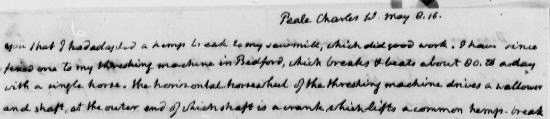 Peale Charles W. May 8. 16.
you that I had adapted a hemp break to my sawmill, which did good work. I have since
fixed one to my threshing machine in Bedford, which breaks & beats about 80. ℔ a day
with a single horse. the horizontal horsewheel of the threshing machine drives a wallower
and shaft, at the outer end of which shaft is a crank which lifts a common hemp-break